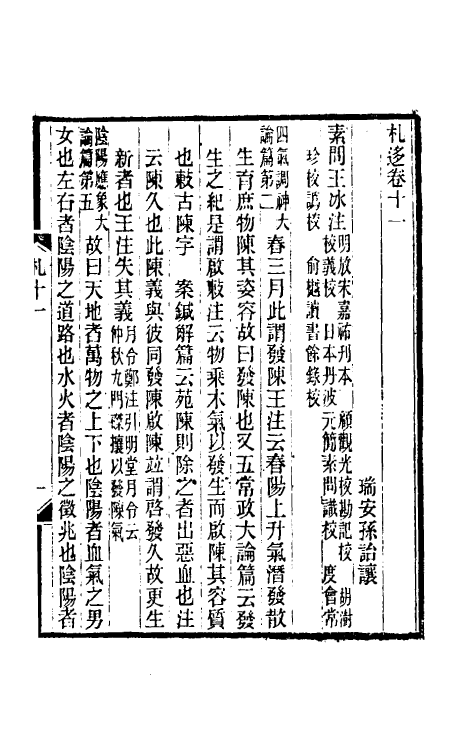 札迻卷十一
瑞安孫詒讓
素問王冰注明放宋嘉祐刊本 顧觀光校勘記校 胡澍
校義校 日本丹波元簡素問識校 度會常
珍校譌校 俞樾讀書餘錄校
四氣調神大
論篇第二 春三月此謂發陳王注云春陽上升氣潛發散
生育庶物陳其姿容故曰發陳也又五常政大論篇云發
生之紀是謂啟敕注云物乘木氣以發生而啟陳其容質
也敕古陳字 案鍼解篇云菀陳則除之者出惡血也注
云陳久也此陳義與彼同發陳啟陳竝謂啓發久故更生
新者也王注失其義月令鄭注引明堂月令云
仲秋九門磔攘以發陳氣
陰陽應象大
論篇第五 故曰天地者萬物之上下也陰陽者血氣之男
女也左右者陰陽之道路也水火者陰陽之徵兆也陰陽者
札十一
一